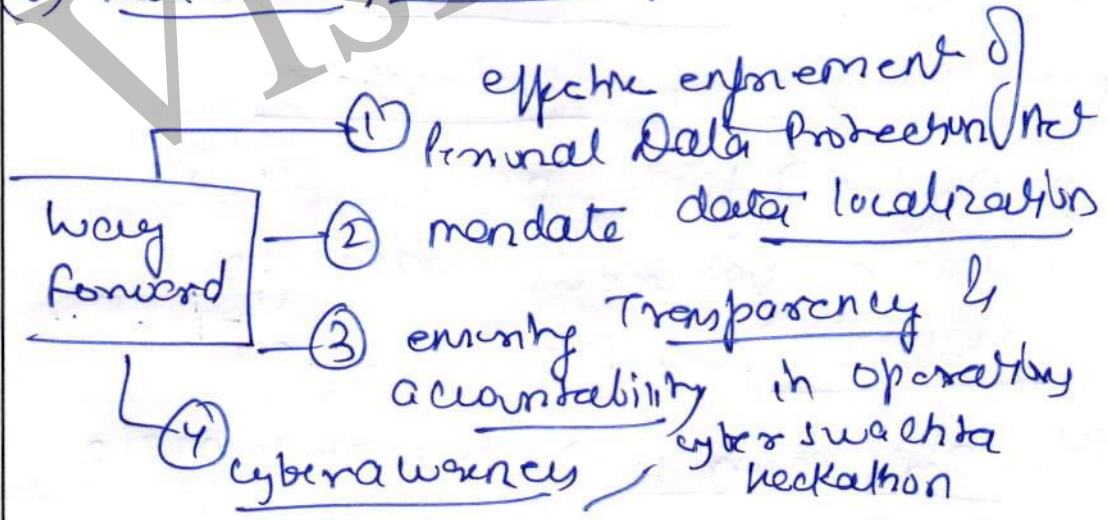 effective enforcement of
① Personal Data Protection Act
Way
forward
② mandate data localization
③ ensuring Transparency &
accountability in operations
④ cyber awareness / cyber swachta
hackathon
VIS